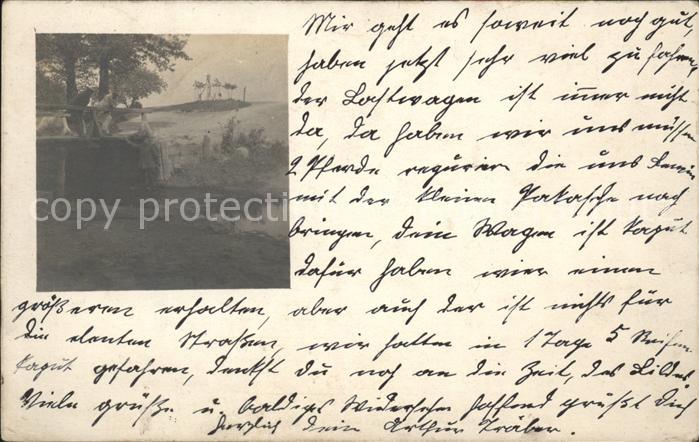 Mir geht es soweit noch gut,
haben jetzt sehr viel zu fahren,
der Lastwagen ist immer nicht
da, da haben wir uns müssen
2 Pferde requirier die uns
mit der kleinen Pakasche nach
bringen, dein Wagen ist kaput
dafür haben wier einen
größeren erhalten, aber auch der ist nichts für
die elenten Straßen, wir hatten in 1 Tage 5 Reifen
kaput gefahren, denkst du noch an die Zeit, des Bildes
Viele grüße u. baldiges Widersehen hoffend grüßt dich
herzlich dein Arthur Träber.
copy protected